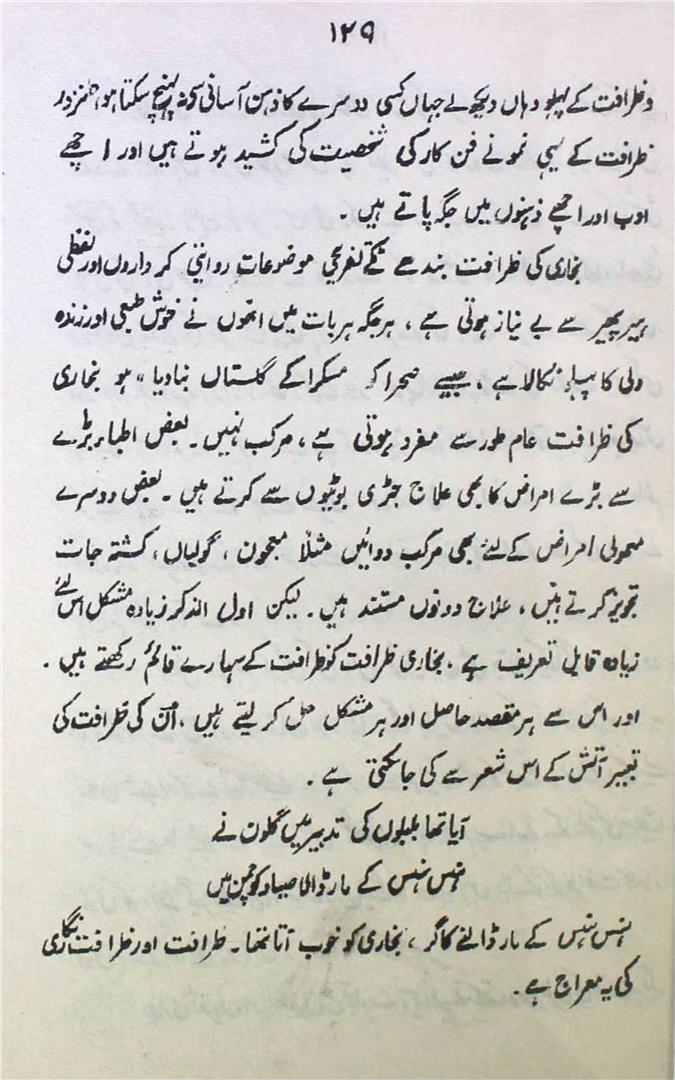 ۱۲۹
و ظرافت کے پہلو وہاں دیکھ لے جہاں کسی دوسرے کا ذہن آسانی سے نہ پہنچ سکتا ہو، طنز و
ظرافت کے یہی نمونے فن کار کی شخصیت کی کشید ہوتے ہیں اور اچھے
ادب اور اچھے ذہنوں میں جگہ پاتے ہیں۔
بخاری کی ظرافت بندھے ٹکے تفریحی موضوعات روایتی کرداروں اور لفظی
ہیر پھیر سے بے نیاز ہوتی ہے، ہر جگہ ہر بات میں انھوں نے خوش طبعی اور زندہ
دلی کا پہلو نکالا ہے، جیسے صحرا کو مسکرا کے گلستاں بنا دیا، ہو بخاری
کی ظرافت عام طور سے مفرد ہوتی ہے، مرکب نہیں۔ بعض اطباء بڑے
سے بڑے امراض کا بھی علاج جڑی بوٹیوں سے کرتے ہیں۔ بعض دوسرے
معمولی امراض کے لئے بھی مرکب دوائیں مثلاً معجون، گولیاں، کشتہ جات
تجویز کرتے ہیں، علاج دونوں مستند ہیں۔ لیکن اول الذکر زیادہ مشکل اس لئے
زیادہ قابل تعریف ہے۔ بخاری ظرافت کو ظرافت کے سہارے قائم رکھتے ہیں۔
اور اس سے ہر مقصد حاصل اور ہر مشکل حل کر لیتے ہیں، اُن کی ظرافت کی
تعبیر آتش کے اس شعر سے کی جا سکتی ہے۔
آیا تھا بلبلوں کی تدبیر میں گلوں نے
ہنس ہنس کے مار ڈالا صیاد کو چمن میں
ہنس ہنس کے مار ڈالنے کا گر، بخاری کو خوب آتا تھا۔ ظرافت اور ظرافت نگاری
کی یہ معراج ہے۔